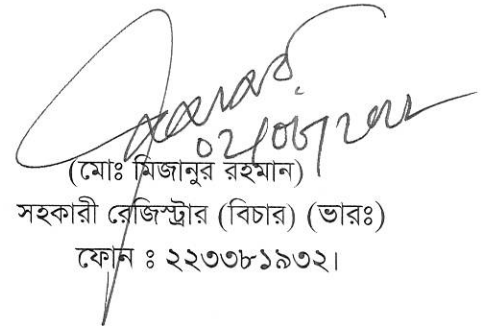 (মোঃ মিজানুর রহমান)
সহকারী রেজিস্ট্রার (বিচার) (ভারঃ)
ফোন ঃ ২২৩৩৮১৯৩২।